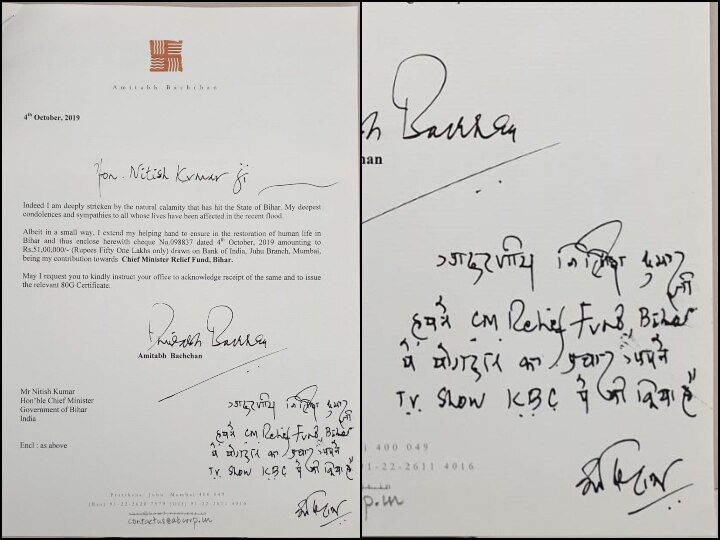 Amitabh Bachchan
4th October, 2019
Hon. Nitish Kumar ji
Indeed I am deeply stricken by the natural calamity that has hit the State of Bihar. My deepest
condolences and sympathies to all whose lives have been affected in the recent flood.
Albeit in a small way, I extend my helping hand to ensure in the restoration of human life in
Bihar and thus enclose herewith cheque No.098837 dated 4th October, 2019 amounting to
Rs.51,00,000/- (Rupees Fifty One Lakhs only) drawn on Bank of India, Juhu Branch, Mumbai,
being my contribution towards Chief Minister Relief Fund, Bihar.
May I request you to kindly instruct your office to acknowledge receipt of the same and to issue
the relevant 80G Certificate.
Amitabh Bachchan
Amitabh Bachchan
Mr Nitish Kumar
Hon'ble Chief Minister
Government of Bihar
India
Encl : as above
आदरणीय नितिश कुमार
जी
हमने CM Relief Fund, Bihar
में योगदान का प्रचार अपने
T.V. Show KBC पे भी किया है
अमिताभ
Pratiksha Juhu Mumbai 400 049
contactus@abcorp.in
Bachchan
han
आदरणीय नितिश कुमार
जी
हमने CM Relief Fund, Bihar
में योगदान का प्रचार अपने
T.V. Show KBC पे भी किया है
अमिताभ
i 400 049
91-22-2611 4016
p.in